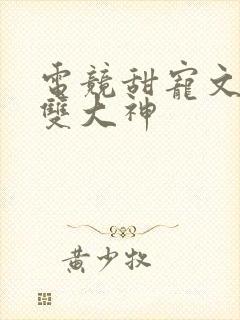 電競甜寵文
雙大神
黃少牧